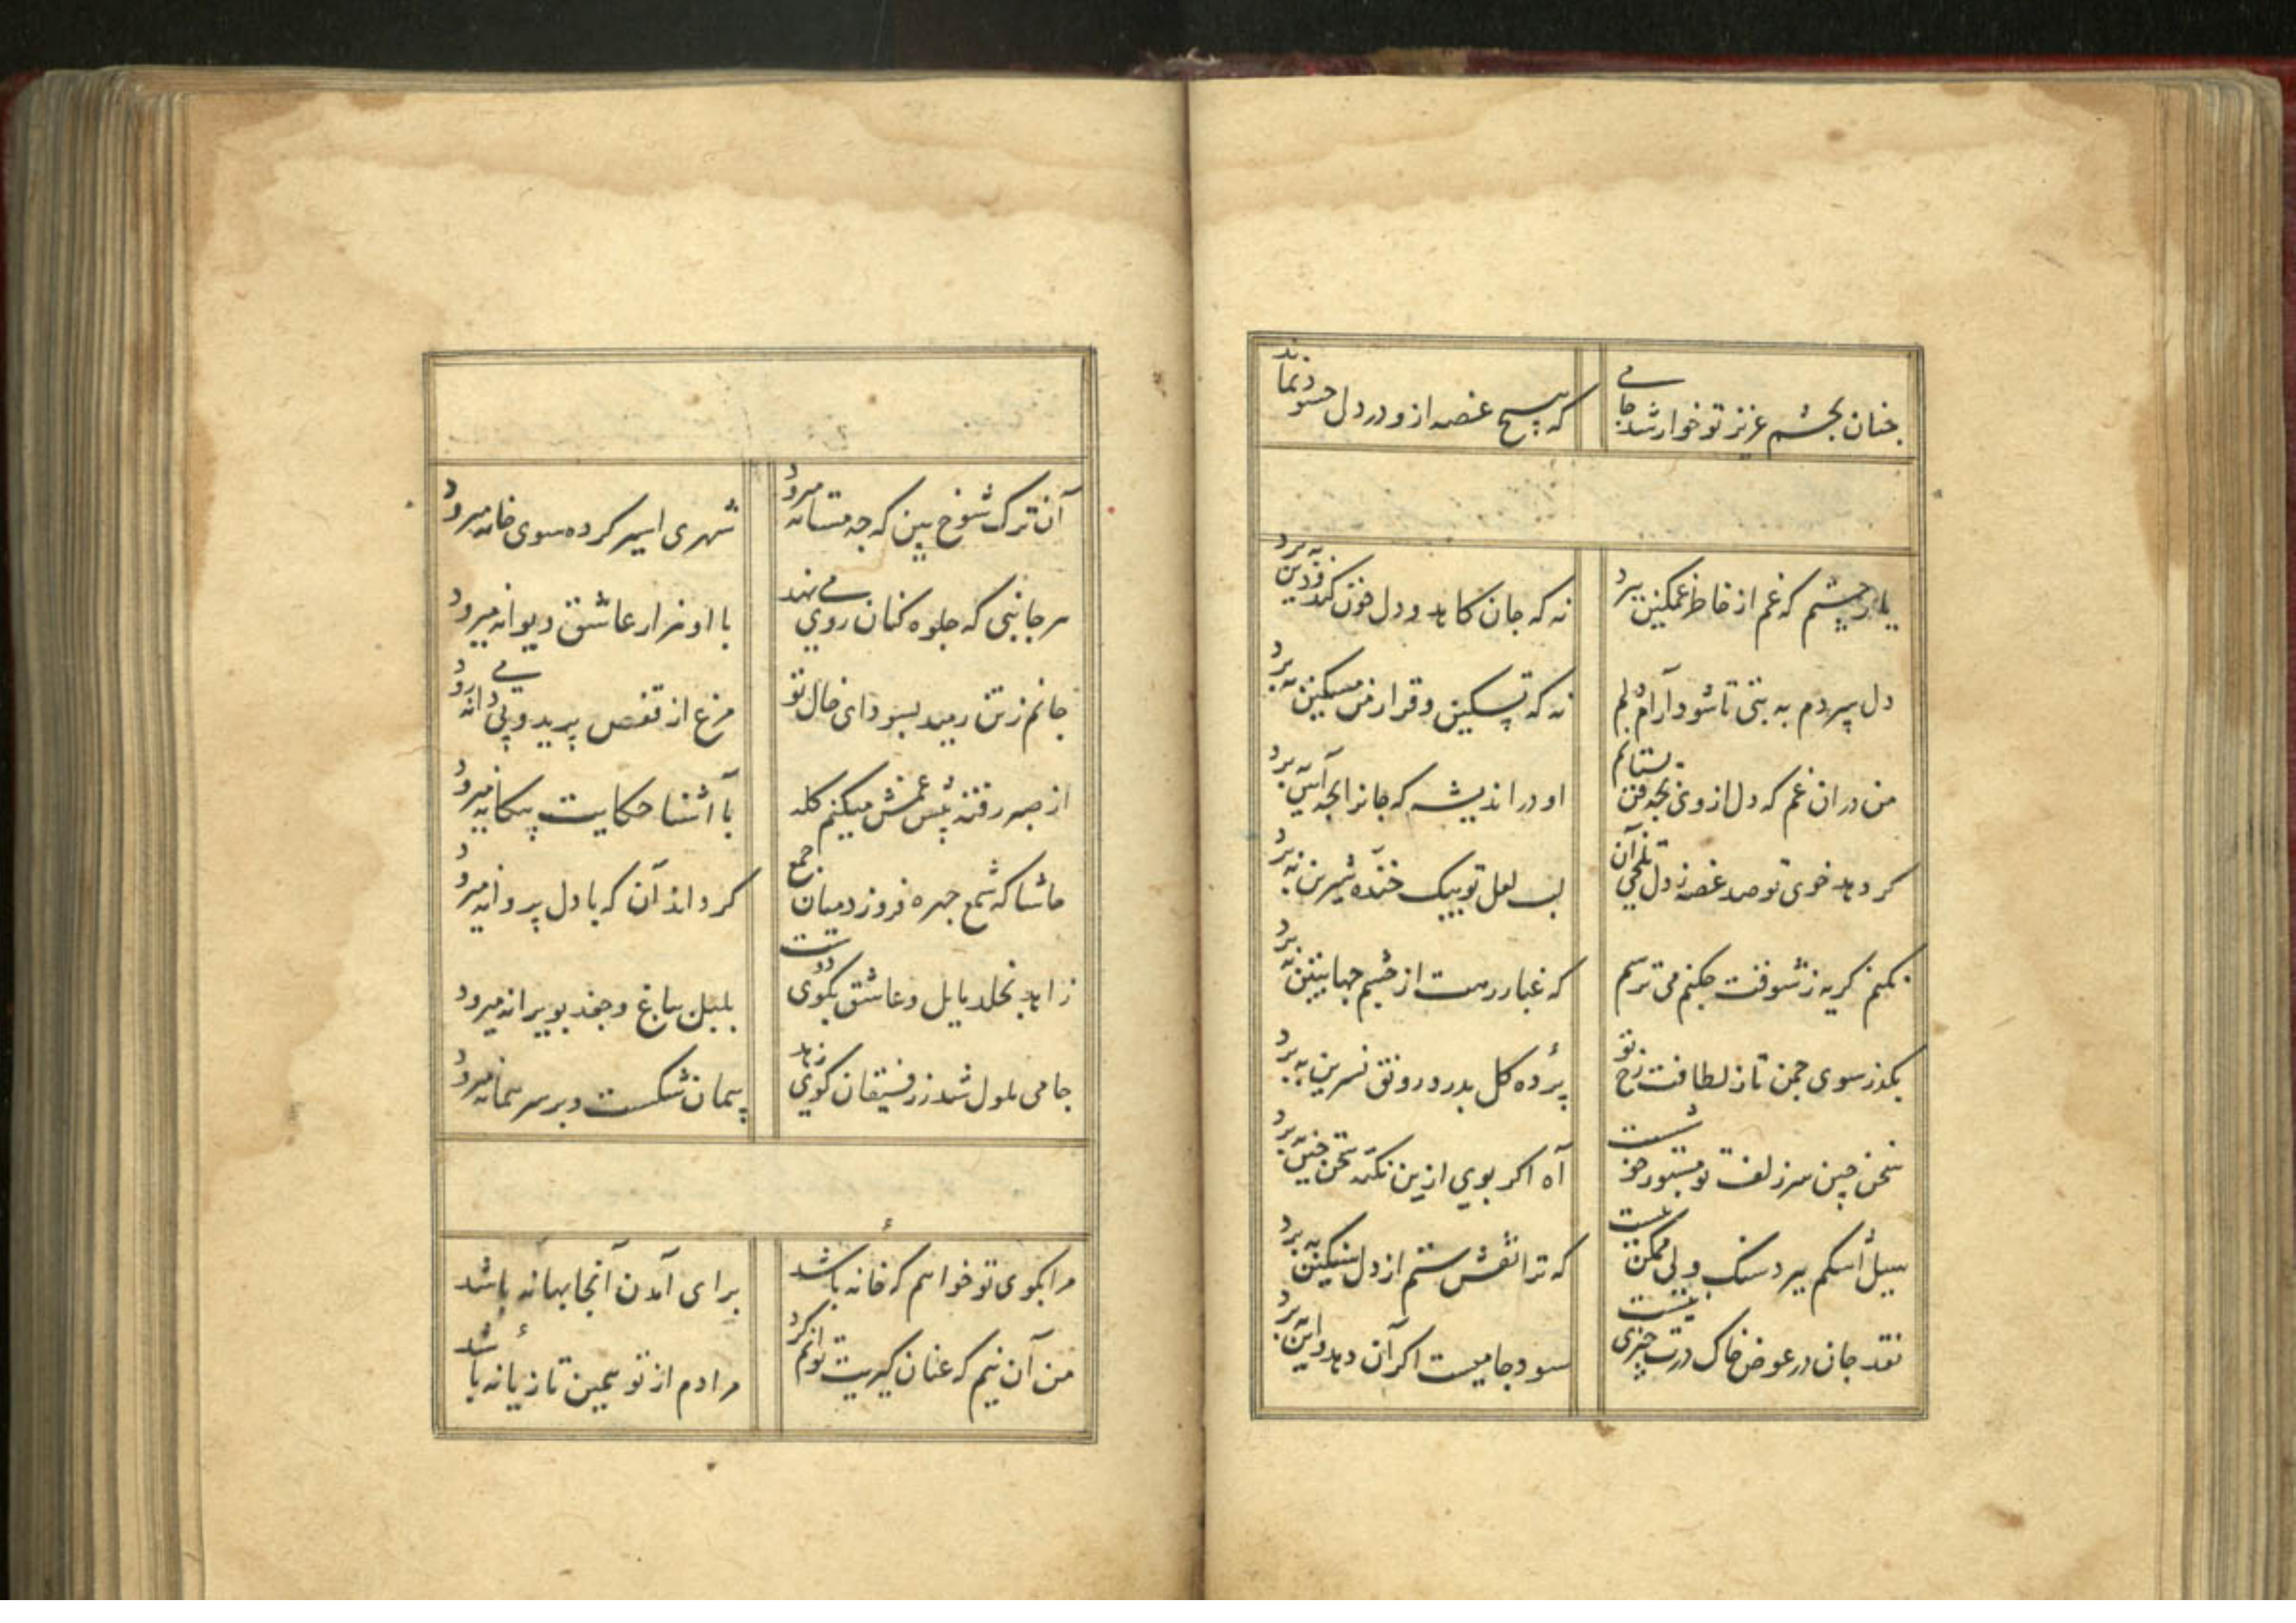 چنان بچشم عزیز تو خوار شد جامی
که هیچ غصه ازو در دل حسود نماند
یار جستم که غم از خاطر غمگین ببرد
نه که جان کاهد و دل خون کند و دین ببرد
دل سپردم به بتی تا شود آرام دلم
نه که تسکین و قرار من مسکین ببرد
من در ان غم که دل از وی بچه فن بستانم
او در اندیشه که جانرا بچه آیین ببرد
کر دهد خوی تو صد غصه ز دل تلخی آن
لب لعل تو بیک خنده شیرین ببرد
نکنم کریه ز شوقت چکنم می ترسم
که غبار رهت از چشم جهان بین ببرد
بکذر سوی چمن تا ز لطافت رخ تو
پرده کل بدرد رونق نسرین ببرد
سخن چین سر زلف تو مستور خوشست
آه اکر بوی ازین نکته سخن چین ببرد
سیل اشکم ببرد سنک ولی ممکن نیست
که ترا نقش ستم از دل سنکین ببرد
نقد جان در عوض خاک درت چیزی نیست
سود جامیست اکر آن دهد و این ببرد
آن ترک شوخ بین که چه مستانه میرود
شهری اسیر کرده سوی خانه میرود
هر جانبی که جلوه کنان روی می نهد
با او هزار عاشق دیوانه میرود
جانم ز تن رمید بسودای خال تو
مرغ از قفص پرید و پی دانه می رود
از صبر رفته پیش غمش میکنم کله
با آشنا حکایت بیکانه میرود
حاشا که شمع چهره فروزد میان جمع
کر داند آن که با دل پروانه میرود
زاهد بخلد مایل و عاشق بکوی دوست
بلبل بباغ و جغد بویرانه میرود
جامی ملول شد ز رفیقان کوی زهد
پیمان شکست و بر سر پیمانه میرود
مرا بکوی تو خواهم که خانه باشد
برای آمدن آنجا بهانه باشد
من آن نیم که عنان کیریت توانم کرد
مرادم از تو همین تازیانه باشد